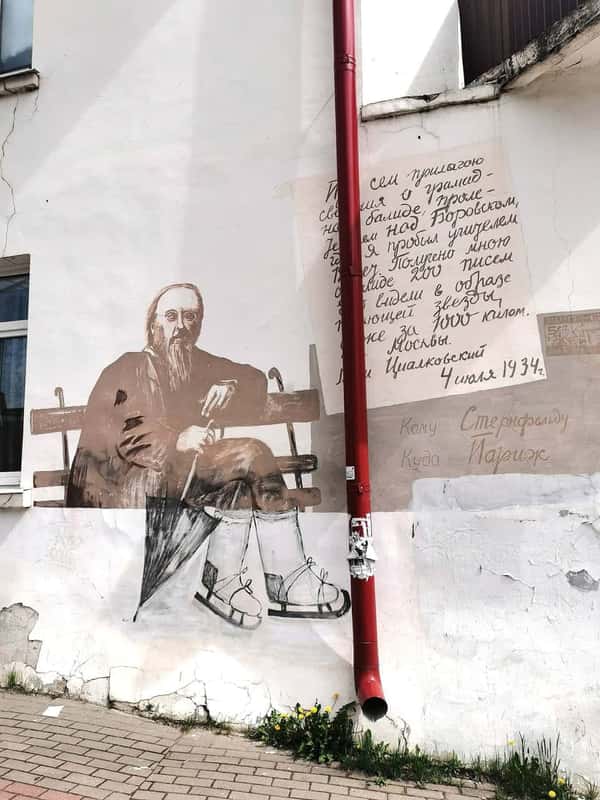 сем прилагаю
ния о громад-
балиде, проле-
ем над Боровском,
я пробыл учителем
Получено мною
лиде 200 писем
видели в образе
ающей звезды,
же за 1000 килом.
Москвы.
Циалковский
4 июля 1934г.
Кому Стернфельду
Куда Париж